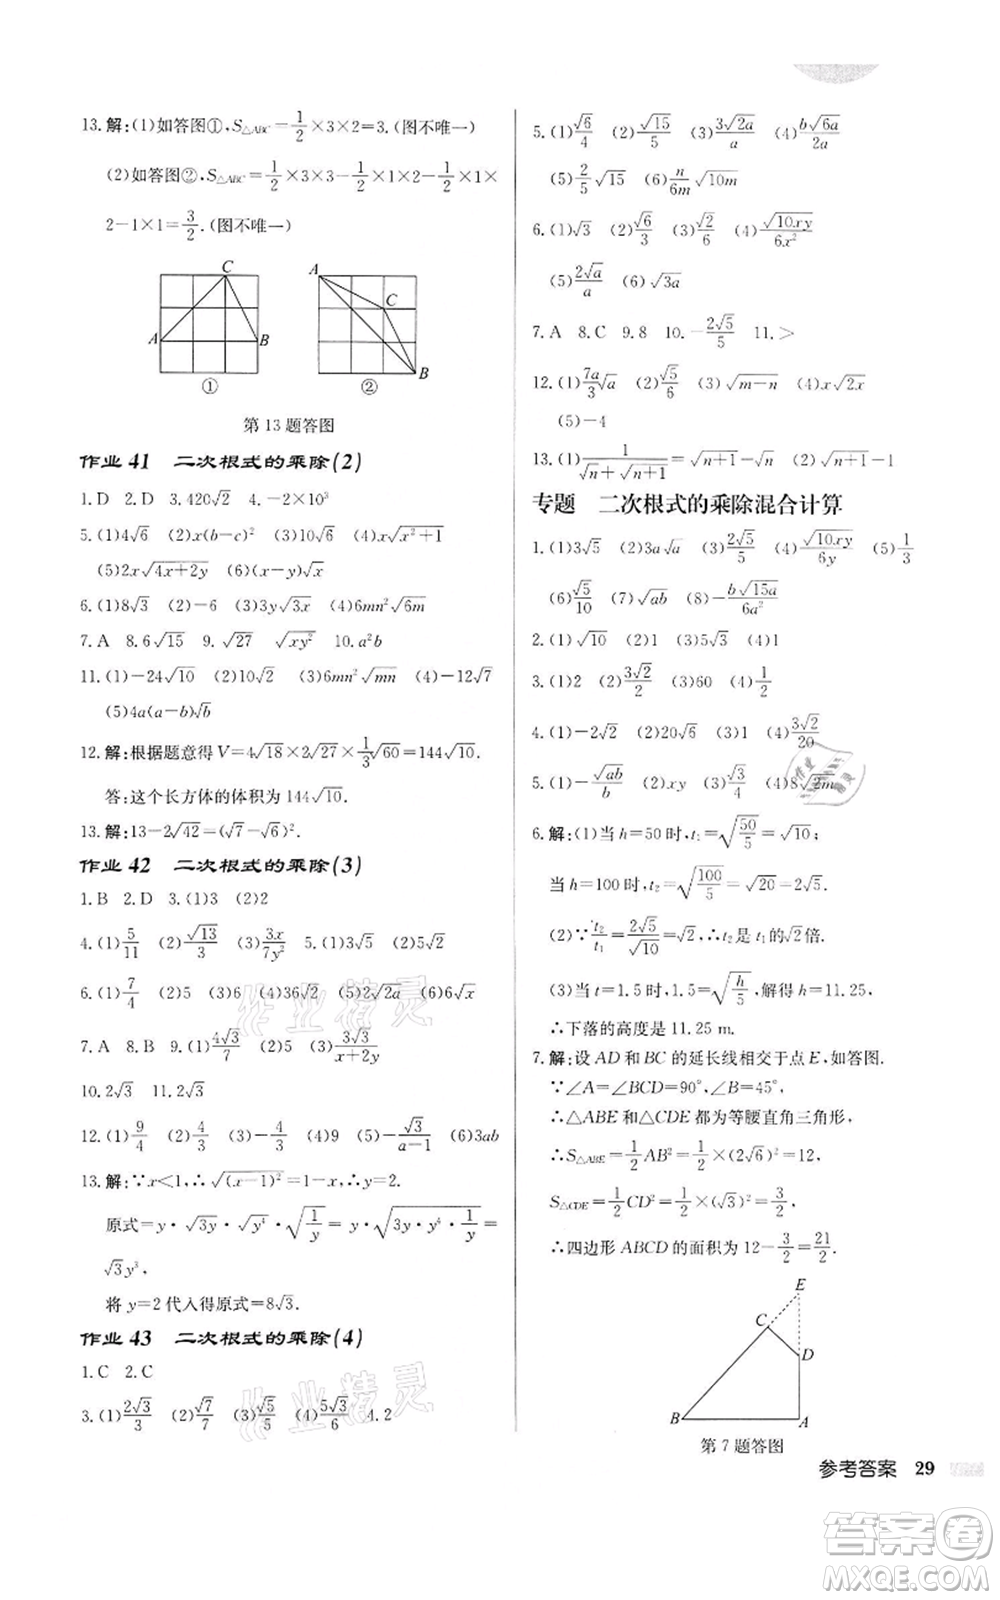 13.解:(1)如答图①,S△ABC=1/2×3×2=3.(图不唯一)
(2)如答图②,S△ABC=1/2×3×3-1/2×1×2-1/2×1×
2-1×1=3/2.(图不唯一)
C
A
B
①
A
C
B
②
第13题答图
作业 41 二次根式的乘除(2)
1.D 2.D 3.420√2 4.-2×10³
5.(1)4√6 (2)x(b-c)² (3)10√6 (4)x√(x²+1)
(5)2x√(4x+2y) (6)(x-y)√x
6.(1)8√3 (2)-6 (3)3y√(3x) (4)6mn²√(6m)
7.A 8.6√15 9.√27 √(xy²) 10.a²b
11.(1)-24√10 (2)10√2 (3)6mn²√(mn) (4)-12√7
(5)4a(a-b)√b
12.解:根据题意得V=4√18×2√27×1/3√60=144√10.
答:这个长方体的体积为144√10.
13.解:13-2√42=(√7-√6)².
作业 42 二次根式的乘除(3)
1.B 2.D 3.(1)3 (2)2
4.(1)5/11 (2)√13/3 (3)3x/7y² 5.(1)3√5 (2)√2
6.(1)7/4 (2)5 (3)6 (4)36√2 (5)2√(2a) (6)6√x
7.A 8.B 9.(1)4√3/7 (2)5 (3)3√3/(x+2y)
10.2√3 11.2√3
12.(1)9/4 (2)4/3 (3)-4/3 (4)9 (5)-√3/(a-1) (6)3ab
13.解:∵x<1,∴√((x-1)²)=1-x,∴y=2.
原式=y·√(3y)·√(y⁴)·√(1/y)=y·√(3y·y⁴·1/y)=
√3y³,
将y=2代入得原式=8√3.
作业 43 二次根式的乘除(4)
1.C 2.C
3.(1)2√3/3 (2)√7/7 (3)√5/5 (4)5√3/6 4.2
5.(1)√6/4 (2)√15/5 (3)3√(2a)/a (4)b√(6a)/2a
(5)2/5√15 (6)n/6m√(10m)
6.(1)√3 (2)√6/3 (3)√2/6 (4)√(10xy)/6x²
(5)2√a/a (6)√(3a)
7.A 8.C 9.8 10.-2√5/5 11.>
12.(1)7a/3√a (2)√5/6 (3)√(m-n) (4)x√(2x)
(5)-4
13.(1)1/(√n+√(n+1))=√(n+1)-√n (2)√(n+1)
专题 二次根式的乘除混合计算
1.(1)3√5 (2)3a√a (3)2√5/5 (4)√(10xy)/6y (5)1/3
(6)√5/10 (7)√(ab) (8)-b√(15a)/6a²
2.(1)√10 (2)1 (3)5√3 (4)1
3.(1)2 (2)3√2/2 (3)60 (4)1/2
4.(1)-2√5 (2)√3 (3)-√2 (4)3√2/20
5.(1)-√(ab)/b (2)xy (3)√3/4 (4)8√(2m)
6.解:(1)当h=50时,t₁=√(50/5)=√10;
当h=100时,t₂=√(100/5)=√20=2√5.
(2)∵t₂/t₁=2√5/√10=√2,∴t₂是t₁的√2倍.
(3)当t=1.5时,1.5=√(h/5),解得h=11.25,
∴下落的高度是11.25 m.
7.解:设AD和BC的延长线相交于点E,如答图.
∵∠A=∠BCD=90°,∠B=45°,
∴△ABE和△CDE都为等腰直角三角形,
∴S△ABE=1/2AB²=1/2×(2√6)²=12,
S△CDE=1/2CD²=1/2×(√3)²=3/2,
∴四边形ABCD的面积为12-3/2=21/2.
E
C
D
B
A
第7题答图
参考答案 29
作业精灵
作业精灵
答案卷
MXQE.COM